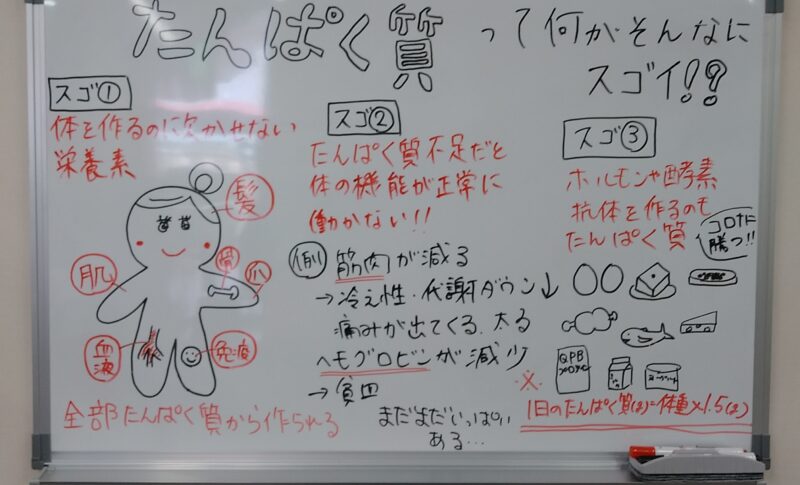 たんぱく質って何がそんなに
スゴイ!?
スゴ①
体を作るのに欠かせない
栄養素
髪
肌
骨
爪
血液
免疫
全部たんぱく質から作られる
スゴ②
たんぱく質不足だと
体の機能が正常に
働かない!!
例 筋肉が減る
→冷え性・代謝ダウン↓
痛みが出てくる、太る
ヘモグロビンが減少
→貧血
まだまだいっぱい
ある…
スゴ③
ホルモンや酵素
抗体を作るのも
たんぱく質
コロナに
勝つ!!
※
1日のたんぱく質(g)=体重×1.5(g)